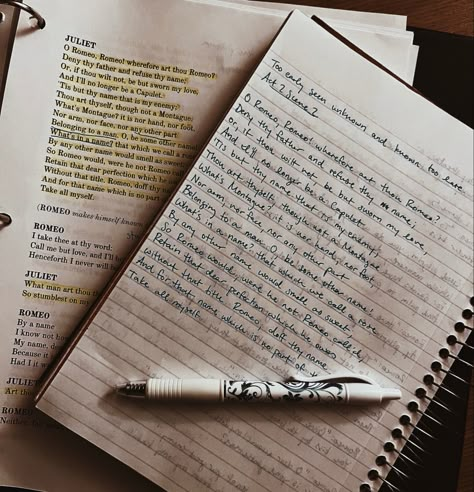 JULIET
O Romeo, Romeo! wherefore art thou Romeo?
Deny thy father and refuse thy name;
Or, if thou wilt not, be but sworn my love,
And I'll no longer be a Capulet.
'Tis but thy name that is my enemy:
Thou art thyself, though not a Montague.
What's Montague? it is nor hand, nor foot,
Nor arm, nor face, nor any other part
Belonging to a man. O, be some other name
What's in a name? that which we call a rose
By any other name would smell as sweet
So Romeo would, were he not Romeo call
Retain that dear perfection which he
Without that title. Romeo, doff thy na
And for that name which is no part
Take all myself.
(ROMEO makes himself known
ROMEO
I take thee at thy word:
Call me but love, and I'll
Henceforth I never will
JULIET
What man art thou
So stumblest on my
ROMEO
By a name
I know not how
My name, de
Because it
Had I it w
JULIET
Art thou
ROMEO
Neither, fa
Too early seen unknown, and known too late
Act 2 Scene 2
O Romeo, Romeo! wherefore art thou Romeo?
Deny thy father and refuse thy name;
or if thou wilt not be but sworn my love,
And I'll no longer be a Capulet
Tis but thy name that is my enemy;
Thou art thyself, though not a Montague
What's Montague? it is nor hand, nor foot,
Nor arm, nor face, nor any other part
Belonging to a man. O, be some other name!
What's in a name? that which we call a rose
By any other name would smell as sweet
So Romeo would, were he not Romeo called,
Retain that dear perfection which he owes
without that title, Romeo, doff thy name
And for that name which is no part of
Take all myself